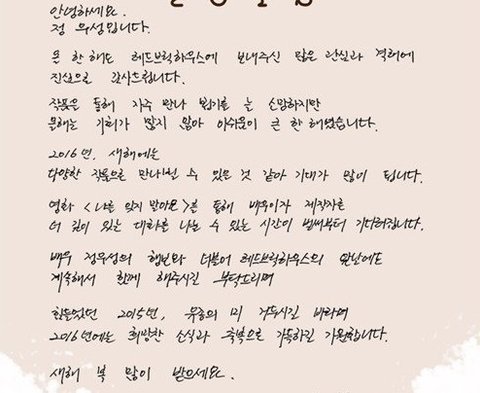 안녕하세요.
정우성입니다.
올 한 해도 레드브릭하우스에 보내주신 많은 관심과 격려에
진심으로 감사드립니다.
작품을 통해 자주 만나 뵙기를 늘 소망하지만
올해는 기회가 많지 않아 아쉬움이 큰 한 해였습니다.
2016년, 새해에는
다양한 작품으로 만나뵐 수 있을 것 같아 기대가 많이 됩니다.
영화 <나를 잊지 말아요>를 통해 배우이자 제작자로
더 깊이 있는 대화를 나눌 수 있는 시간이 벌써부터 기다려집니다.
배우 정우성의 행보와 더불어 레드브릭하우스의 앞날에도
계속해서 함께 해주시길 부탁드리며
힘들었던 2015년, 유종의 미 거두시길 바라며
2016년에는 희망찬 소식과 축복으로 가득하길 기원합니다.
새해 복 많이 받으세요.